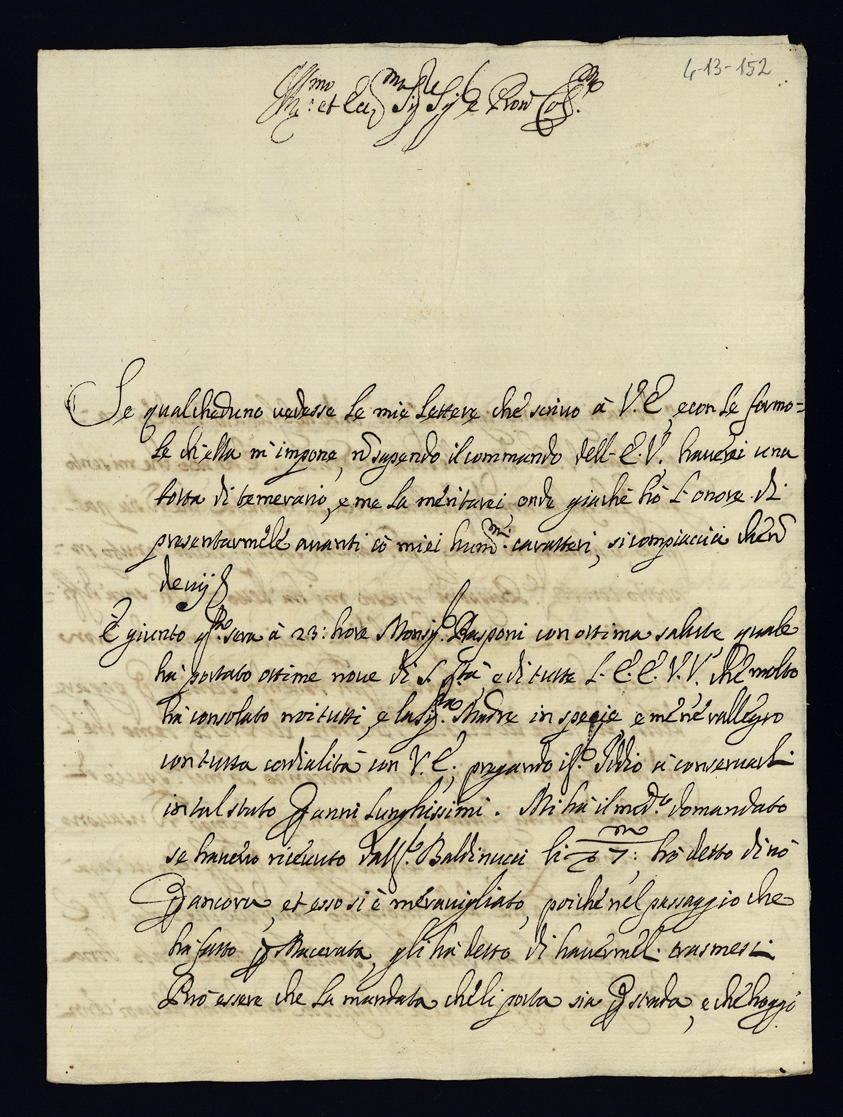 4-13-152
Ill.mo et Ecc.mo Sig.re Sig.re e Pron Col.mo
Se qualcheduno vedesse le mie lettere che scrivo à V.E, e con le formo=
le ch'ella m'impone, nō sapendo il commando dell'E.V. haverei una
torta di temerario, e me la meritarei, onde giache hò l'onore di
presentarmele avanti cō miei hum.mi caratteri, si compiaccia che nō
devij
È giunto q.sta sera à 23: hore Monsig.r Rasponi con ottima salute quale
hà portato ottime nove di S. Stà e di tutte l'E.E.V.V. che molto
hà consolato noi tutti, e la Sig.ra Madre in specie e me ne rallegro
con tutta cordialità con V.E, pregando il S. Iddio à conservarli
in tal stato p anni lunghissimi. Mi hà il med.o domandato
se havevo ricevuto dall S. Baldinucci li 7: hò detto di nò
p ancora, et esso si è meravigliato, poiche nel passaggio che
hà fatto p Macerata, gli hà detto di havermeli trasmessi
Può essere che la mandata che li porta sia p strada, e che hoggi